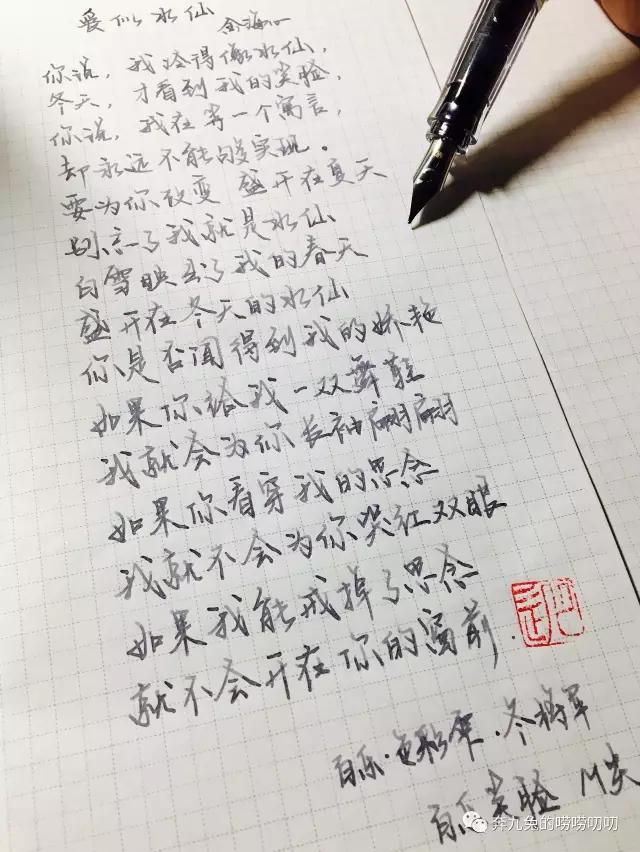 爱似水仙
金海心
你说，我冷得像水仙，
冬天，才看到我的笑脸，
你说，我在等一个寓言，
却永远不能够实现。
要为你改变 盛开在夏天
别忘了我就是水仙
白雪映出了我的春天
盛开在冬天的水仙
你是否闻得到我的娇艳
如果你给我一双舞鞋
我就会为你长袖翩翩
如果你看穿我的思念
我就不会为你哭红双眼
如果我能戒掉了思念
就不会开在你的窗前.
百乐·色彩雫·冬将军
百乐笑脸 M尖
奔九兔的唠唠叨叨